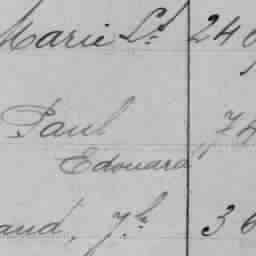 Marie Lt. 24
Paul 74
Edouard
aud, 7h 36